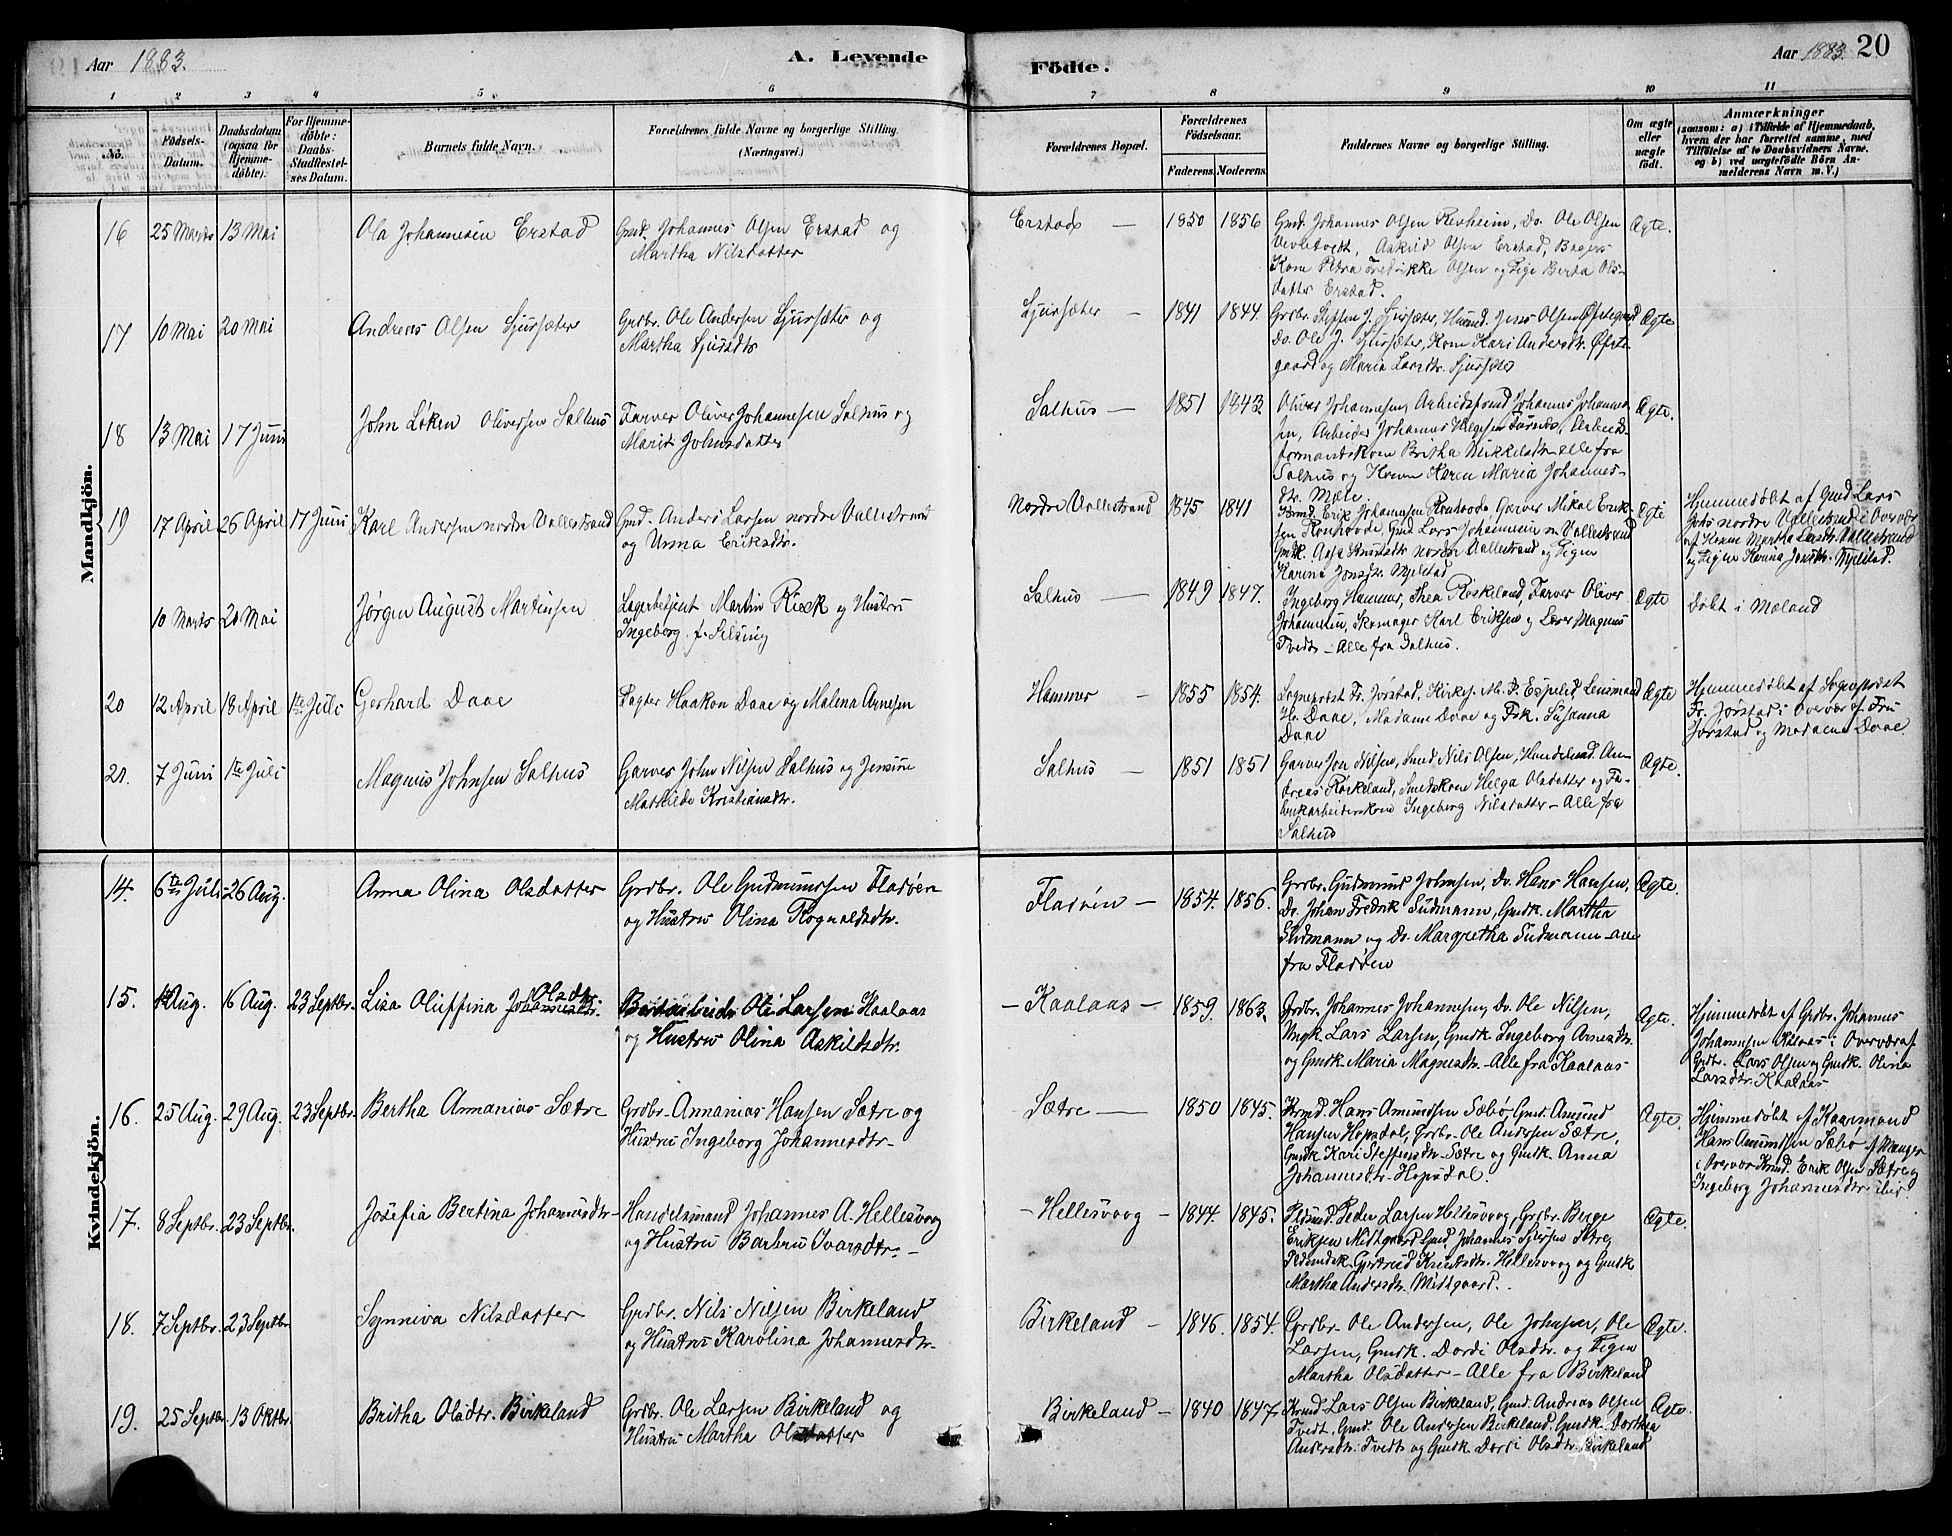 Aar 1883.
A. Levende
Födte.
Aar 1883.
20
1 2 3 4 5 6 7 8 9 10 11
No.
Födsels-
Datum.
Daabsdatum
(ogsaa for
Hjemme-
döbte).
For Hjemme-
döbte:
Daabs-
Stadfæstel-
ses Datum.
Barnets fulde Navn.
Forældrenes fulde Navne og borgerlige Stilling.
(Næringsvei.)
Forældrenes Bopæl.
Forældrenes
Födselsaar.
Faderens. Moderens.
Faddernes Navne og borgerlige Stilling.
Om ægte
eller
uægte
födt.
Anmærkninger
(saasom: a) i Tilfælde af Hjemmedaab,
hvem der har forrettet samme, med
Tilföielse af to Daabsvidners Navne,
og b) ved uægtefödte Börn An-
melderens Navn m. V.)
Mandkjön.
16 25 Marts 13 Mai
Ola Johannesen Erstad
Gmd. Johannes Olsen Erstad og
Martha Nilsdatter
Erstad — 1850 1856
Gmd. Johannes Olsen Revheim, Do. Ole Olsen
Askild Olsen Erstad, Bagers
Kone Petra Fredrikke Olsen og Pige Berta Ols-
datter Erstad.
Ægte.
17 10 Mai 20 Mai
Andreas Olsen Sjursæter
Grdbr. Ole Andersen Sjursæter og
Martha Sjursdtr
Sjursæter — 1841 1844.
Grdbr. Steffen J. Sjursæter, Husmd. Jens Olsen Øvstegaard
Do. Ole J. Sjursæter, Kone Kari Andersdtr. Øvste-
gaard og Maria Larsdtr. Sjursæter
Ægte
18 13 Mai 17 Juni
John Løken Oliversen Salhus
Farver Oliver Johannesen Salhus og
Marit Johnsdatter
Salhus — 1851 1843.
Oliver Johannesen, Arbeidsfmd Johannes Johannes-
sen, Arbeider Johannes Helgesen Arbeids-
formandskone Britha Mikkelsdtr alle fra
Salhus og Konen Karen Maria Johannes-
dtr. Mæle.
Ægte.
19 17 April 26 April 17 Juni
Karl Andersen nordre Vallestrand
Gmd. Anders Larsen nordre Vallestrand
og Unna Eriksdtr.
Nordre Vallestrand 1845 1841
Krmd. Erik Johannesen Garver Mikal Erik-
sen Gmd Lars Johannesen n. Vallestrand
Gmdk. nordre Vallestrand og Pigen
Karina Jonsdtr. Myhlstad
Ægte
Hjemmedøbt af Gmd Lars
Johs nordre Vallestrand i Overvær
af Konen Martha Larsdtr. Vallestrand
og Pigen Karina Jonsdtr. Myhlstad.
10 Marts 20 Mai
Jørgen August Martinsen
Lagerbetjent Martin Rieck og Hustru
Ingeborg f.
Salhus — 1849 1847.
Ingeborg Hammer, Thea Røskeland, Farver Oliver
Johannesen, Skomager Karl Eriksen og Lærer Magnus
Tvedt – Alle fra Salhus.
Ægte
Døbt i Mæland
20 12 April 18 April 1ste Juli
Gerhard Daae
Pagter Haakon Daae og Malena Arnesen
Hammer — 1855 1854.
Sogneprest Fr. Jørstad, Kirkes. M. P. Espelid Lensmand
H. Daae, Madame Daae og Frk. Susanna
Daae
Ægte
Hjemmedøbt af Sogneprest
Fr. Jørstad i Overvær af Fru
Jørstad og Madame Daae
21. 7 Juni 1ste Juli
Magnus Johnsen Salhus
Garver John Nilsen Salhus og Jensine
Mathilde Kristiansdtr.
Salhus — 1851 1851
Garver Jon Nilsen, Smed Nils Olsen, Handelsmd. An-
dreas Røskeland, Smedskone Helga Olsdatter og Fa-
brikarbeiderskone Ingeborg Nilsdatter – Alle fra
Salhus
Ægte.
Kvindekjön.
14. 6te Juli 26 Aug.
Anna Olina Olsdatter
Grdbr. Ole Gudmundsen Fladøen
og Hustru Olina Rognaldsdtr.
Fladøen — 1854. 1856.
Grdbr. Gudmund Johnsen, Do. Hans Hansen,
Do. Johan Fredrik Sudmann, Gmdk. Martha
Sudmann og Do. Margretha Sudmann – alle
fra Fladøen
Ægte.
15. Aug. 16 Aug. 23 Septbr.
Lisa Oluffina Johannesdtr. Olsdtr
Ole Larsen Kaalaas
og Hustru Olina Askildsdtr.
— Kaalaas — 1859. 1863.
Grdbr. Johannes Johannesen, Do. Ole Nilsen,
Ungk. Lars Larsen, Gmdk. Ingeborg Arnesdtr.
og Gmdk. Maria Magnesdtr. – Alle fra Kaalaas
Ægte.
Hjemmedøbt af Grdbr. Johannes
Johannesen Kalaas i Overvær af
Grdbr. Lars Olsen og Gmdk. Olina
Larsdtr. Kaalaas
16. 25 Aug. 29 Aug. 23 Septbr.
Bertha Annanias Sætre
Grdbr. Annanias Hansen Sætre og
Hustru Ingeborg Johannesdtr.
Sætre — 1850 1845.
Krmd. Hans Amundsen Sæbø, Gmd. Amund
Hansen Hopsdal, Grdbr. Ole Andersen Sætre,
Gmdk Kari Steffensdtr. Sætre og Gmdk. Anna
Johannesdtr. Hopsdal.
Ægte.
Hjemmedøbt af Kaarmand
Hans Amundsen Sæbø af Manger
i Overvær Krmd. Erik Olsen Sætre og
Ingeborg Johannesdtr. ibid.
17. 8 Septbr. 23 Septbr.
Josefia Bertina Johannesdtr.
Handelsmand Johannes A. Hellesvaag
og Hustru Barbru Ivarsdtr. –
— Hellesvaag — 1844. 1845.
Peder Larsen Hellesvaag, Grdbr. Berge
Eriksen Midtgaard Gmd. Johannes Sjursen Sætre,
Gjertrud Knutsdtr. Hellesvaag og Gmdk.
Martha Andersdtr. Midtgaard.
Ægte.
18. 7 Septbr. 23 Septbr.
Synniva Nilsdatter
Grdbr. Nils Nilsen Birkeland
og Hustru Karolina Johannesdtr.
Birkeland — 1846. 1854.
Grdbr. Ole Andersen, Ole Johnsen, Ole
Larsen, Gmdk. Dordi Olsdtr. og Pigen
Martha Olsdatter – Alle fra Birkeland
Ægte.
19. 25 Septbr. 13 Oktbr.
Britha Olsdtr. Birkeland
Grdbr. Ole Larsen Birkeland og
Hustru Martha Olsdatter
Birkeland — 1840 1847.
Krmd. Lars Olsen Birkeland, Gmd. Andreas Olsen
Tvedt, Gmd. Ole Andersen Birkeland. Gmdk. Dorthea
Andersdtr. Tvedt og Gmdk. Dordi Olsdtr. Birkeland
Ægte.